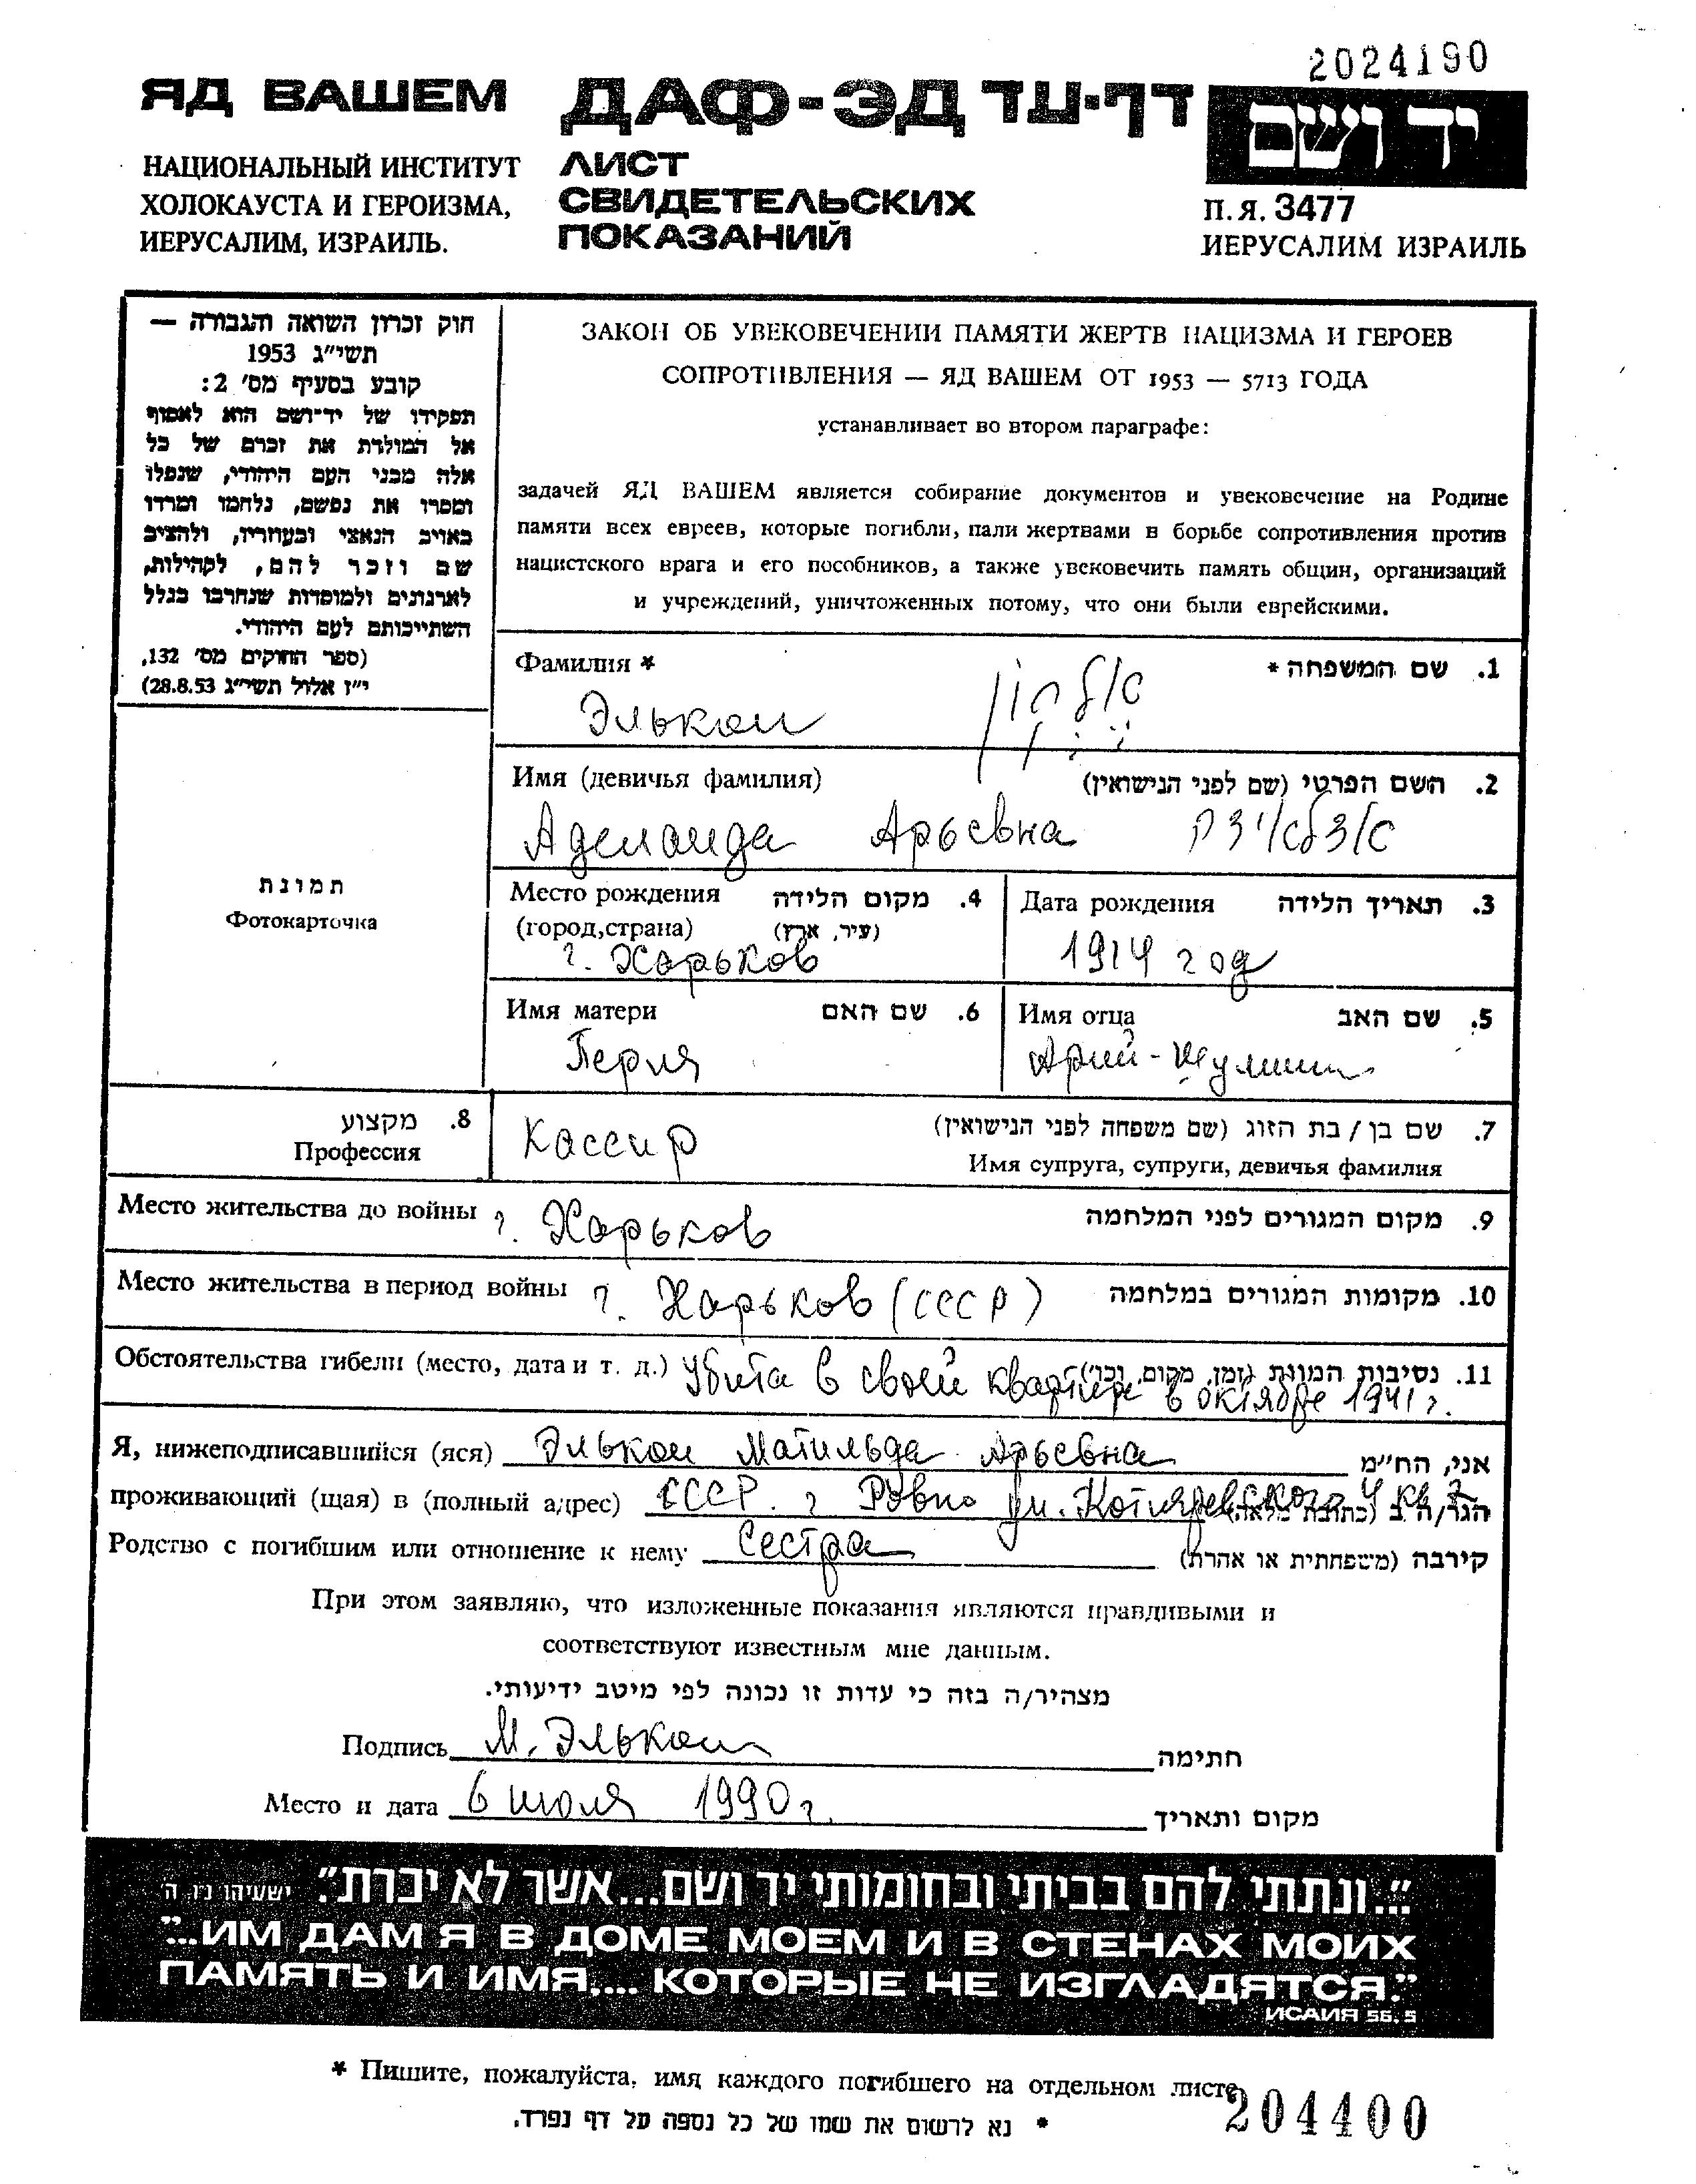 2024190
ЯД ВАШЕМ ДАФ-ЭД דף-עד יד ושם
НАЦИОНАЛЬНЫЙ ИНСТИТУТ
ХОЛОКАУСТА И ГЕРОИЗМА,
ИЕРУСАЛИМ, ИЗРАИЛЬ.
ЛИСТ
СВИДЕТЕЛЬСКИХ
ПОКАЗАНИЙ
П.Я. 3477
ИЕРУСАЛИМ ИЗРАИЛЬ
חוק זכרון השואה והגבורה —
תשי״ג 1953
קובע בסעיף מס׳ 2:
תפקידו של יד־ושם הוא לאסוף
אל המולדת את זכרם של כל
אלה מבני העם היהודי, שנפלו
ומסרו את נפשם, נלחמו ומרדו
באויב הנאצי ובעוזריו, ולהציב
שם וזכר להם, לקהילות,
לארגונים ולמוסדות שנחרבו בגלל
השתייכותם לעם היהודי.
(ספר החוקים מס׳ 132,
י״ז אלול תשי״ג 28.8.53)
ЗАКОН ОБ УВЕКОВЕЧЕНИИ ПАМЯТИ ЖЕРТВ НАЦИЗМА И ГЕРОЕВ
СОПРОТИВЛЕНИЯ — ЯД ВАШЕМ ОТ 1953 — 5713 ГОДА
устанавливает во втором параграфе:
задачей ЯД ВАШЕМ является собирание документов и увековечение на Родине
памяти всех евреев, которые погибли, пали жертвами в борьбе сопротивления против
нацистского врага и его пособников, а также увековечить память общин, организаций
и учреждений, уничтоженных потому, что они были еврейскими.
Фамилия * 1. שם המשפחה *
Элькон
Имя (девичья фамилия) 2. השם הפרטי (שם לפני הנישואין)
Аделаида Арьевна
תמונת
Фотокарточка
Место рождения 4. מקום הלידה
(город,страна) (עיר, ארץ)
г. Харьков
Дата рождения 3. תאריך הלידה
1914 год
Имя матери 6. שם האם
Перля
Имя отца 5. שם האב
Арий-
8. מקצוע
Профессия
Кассир
7. שם בן / בת הזוג (שם משפחה לפני הנישואין)
Имя супруга, супруги, девичья фамилия
Место жительства до войны г. Харьков 9. מקום המגורים לפני המלחמה
Место жительства в период войны г. Харьков (СССР) 10. מקומות המגורים במלחמה
Обстоятельства гибели (место, дата и т. д.) Убита в своей квартире в октябре 1941 г. 11. נסיבות המוות (זמן, מקום, וכו׳)
Я, нижеподписавшийся (яся) Элькон Матильда Арьевна אני, הח״מ
проживающий (щая) в (полный адрес) СССР. г Ровно ул. Котляревского 4 кв 7 הגר/ה ב (כתובת מלאה)
Родство с погибшим или отношение к нему Сестра קירבה (משפחתית או אחרת)
При этом заявляю, что изложенные показания являются правдивыми и
соответствуют известным мне данным.
מצהיר/ה בזה כי עדות זו נכונה לפי מיטב ידיעותי.
Подпись М. Элькон חתימה
Место и дата 6 июля 1990 г. מקום ותאריך
״...ונתתי להם בביתי ובחומותי יד ושם...אשר לא יכרת״. ישעיהו נו ה
"...ИМ ДАМ Я В ДОМЕ МОЕМ И В СТЕНАХ МОИХ
ПАМЯТЬ И ИМЯ.... КОТОРЫЕ НЕ ИЗГЛАДЯТСЯ."
ИСАИЯ 56. 5
* Пишите, пожалуйста, имя каждого погибшего на отдельном листе
* נא לרשום את שמו של כל נספה על דף נפרד.
204400